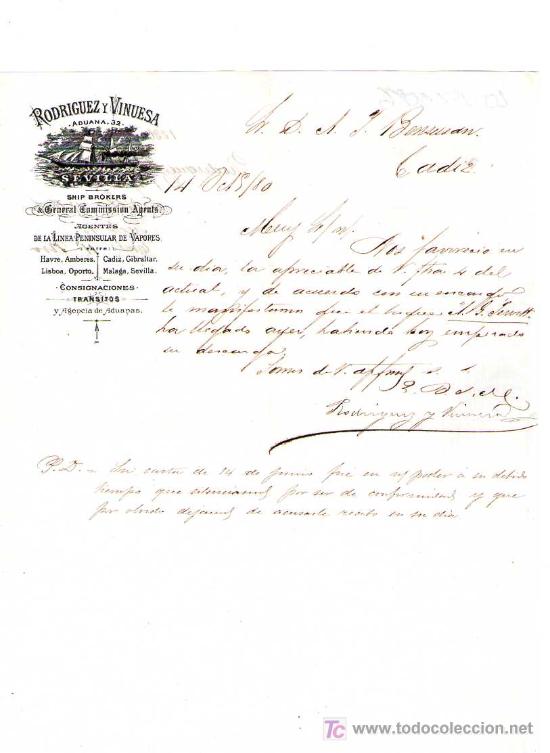 RODRIGUEZ Y VINUESA
ADUANA, 32.
SEVILLA
SHIP BROKERS
& General Commission Agents.
AGENTES
DE LA LINEA PENINSULAR DE VAPORES
ENTRE
Havre, Amberes. Cadiz, Gibraltar,
Lisboa, Oporto, Malaga, Sevilla.
CONSIGNACIONES
TRANSITOS
y Agencia de Aduanas.
Sr. D. A. J. Bensusan.
Cadiz
14 Oct 8/80
Muy Sr. n.
Nos favoreció en
su dia, la apreciable de V. fha 4 del
actual, y de acuerdo con su encargo
le manifestamos que el
ha llegado ayer, habiendo hoy empezado
su descarga,
Somos de V. affmos s. s.
Rodriguez y Vinuesa
P.D. - Su carta de 14 de Junio fué en n/ poder a su debido
tiempo que silenciamos por ser de conformidad y que
por olvido dejamos de acusarle recibo en su dia
TC www.todocoleccion.net